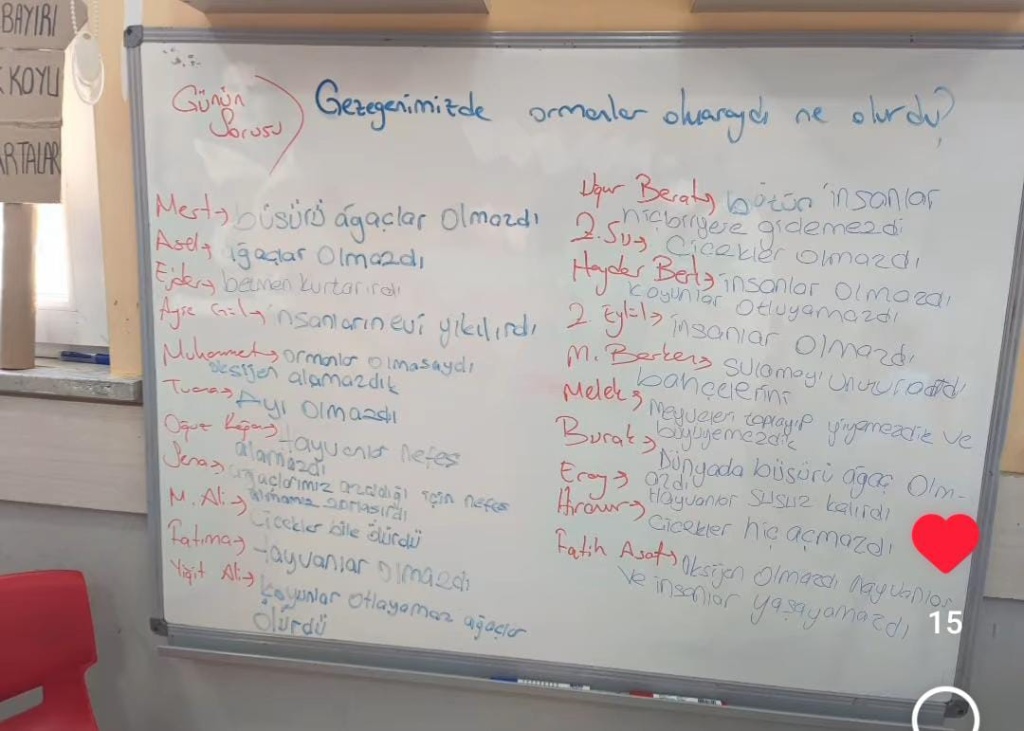 BAYIRI
KOYU
ARTALAR
Günün
Sorusu
Gezegenimizde ormanlar olmaraydı ne olurdu?
Mert → büsürü ağaçlar olmazdı
Asel → ağaçlar olmazdı
Ejder → benmen kurtarırdı
Ayşe Gül → insanların evi yıkılırdı
Muhammet → ormanlar olmasaydı
oksijen alamazdık
Tuana → Ayı olmazdı
Oğuz Kağan → Hayvanlar nefes
alamazdı
Sena → ağaçlarımız azaldığı için nefes
almamız zorlaşırdı
M. Ali → Çiçekler bile ölürdü
Fatıma → Hayvanlar olmazdı
Yiğit Ali → Koyunlar otlayamaz ağaçlar
ölürdü
Uğur Berat → bütün insanlar
hiçbiryere gidemezdi
Z. Su → Çiçekler olmazdı
Hayder Bert → insanlar olmazdı
koyunlar otluyamazdı
Z Eylül → insanlar olmazdı
M. Berker → sulamayı unuturdu
bahçelerini
Melek → Meyveleri toplayıp yiyemezdik ve
büyüyemezdik
Burak → Dünyada büsürü ağaç olm-
azdı
Eray → Hayvanlar susuz kalırdı
→ Çiçekler hiç açmazdı
Fatih Asaf → oksijen olmazdı hayvanlar
ve insanlar yaşayamazdı
15